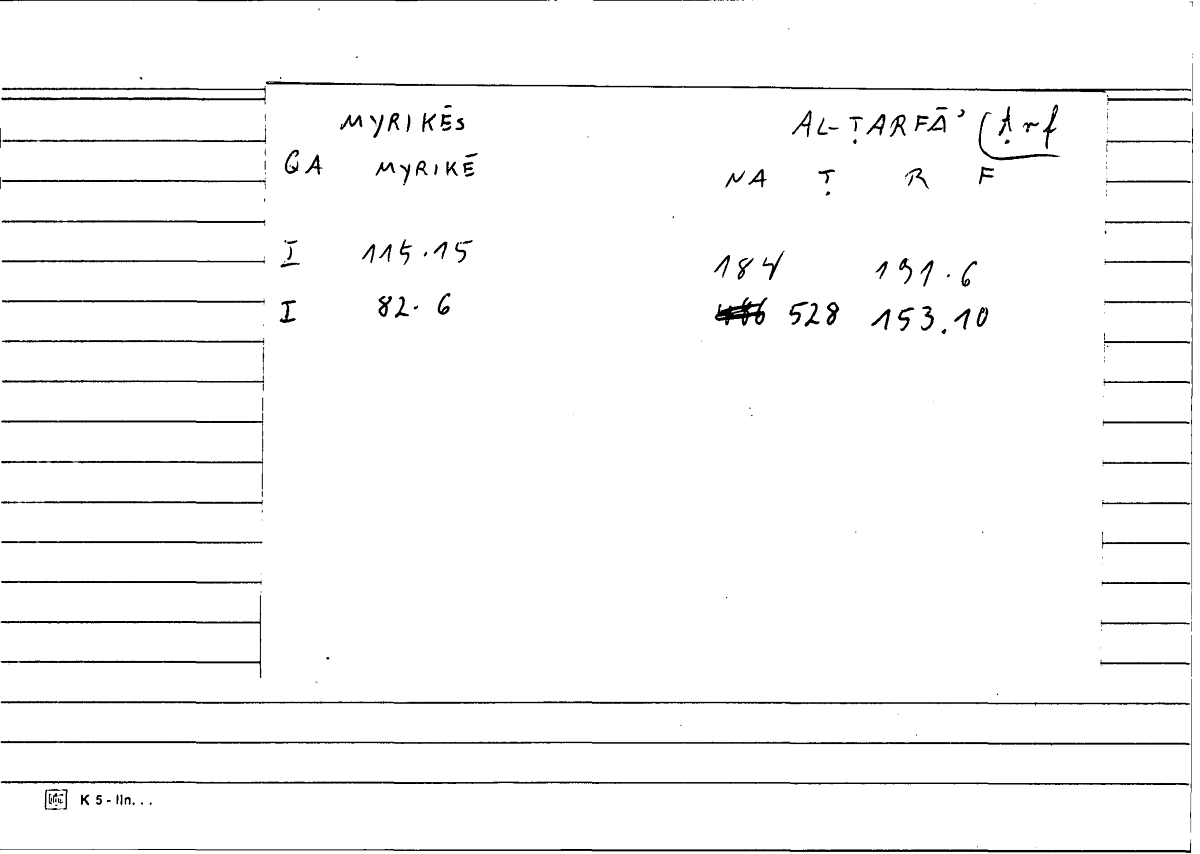 MYRIKĒS AL-ṬARFĀʾ (ṭrf
GA MYRIKĒ NA Ṭ R F
I 115.15 184 191.6
I 82.6 528 153.10
K 5 - lln...